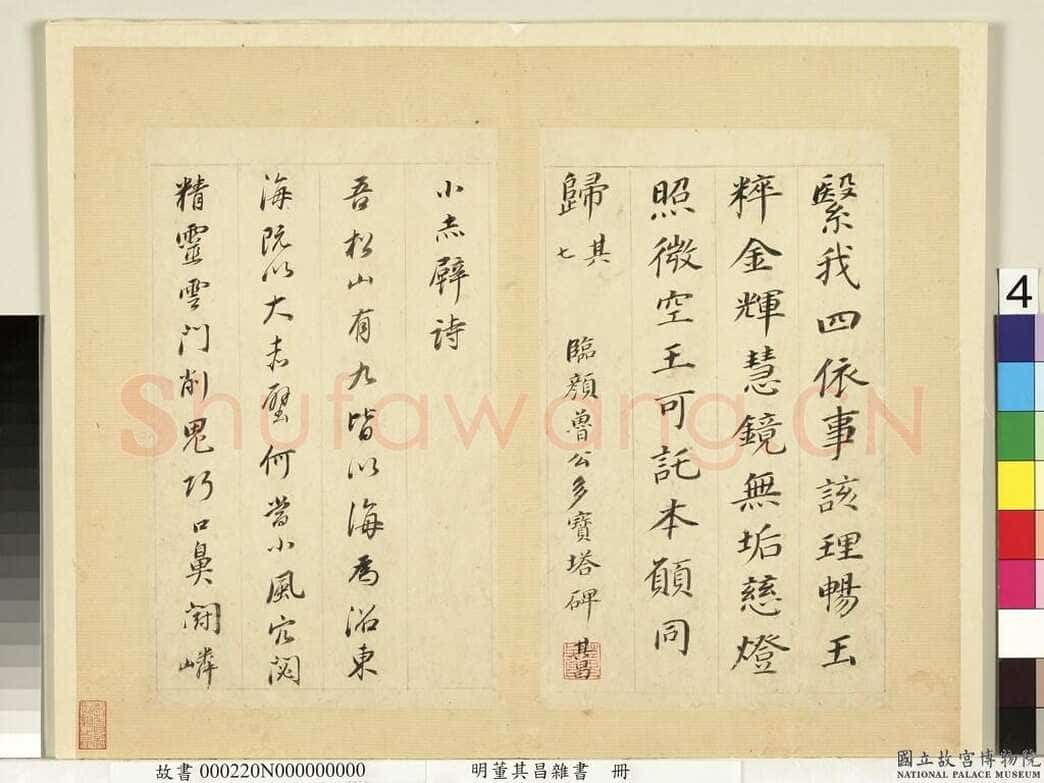 繄我四依事該理暢玉
粹金輝慧鏡無垢慈燈
照微空王可託本願同
歸 其七
臨顏魯公多寶塔碑 其昌
小赤壁詩
吾松山有九皆以海為沼東
海既以大赤壁何嘗小風穴閟
精靈雲門削鬼巧口鼻闢嶙
Shufawang.CN
4
故書 000220N000000000
明董其昌雜書 冊
國立故宮博物院
NATIONAL PALACE MUSEUM